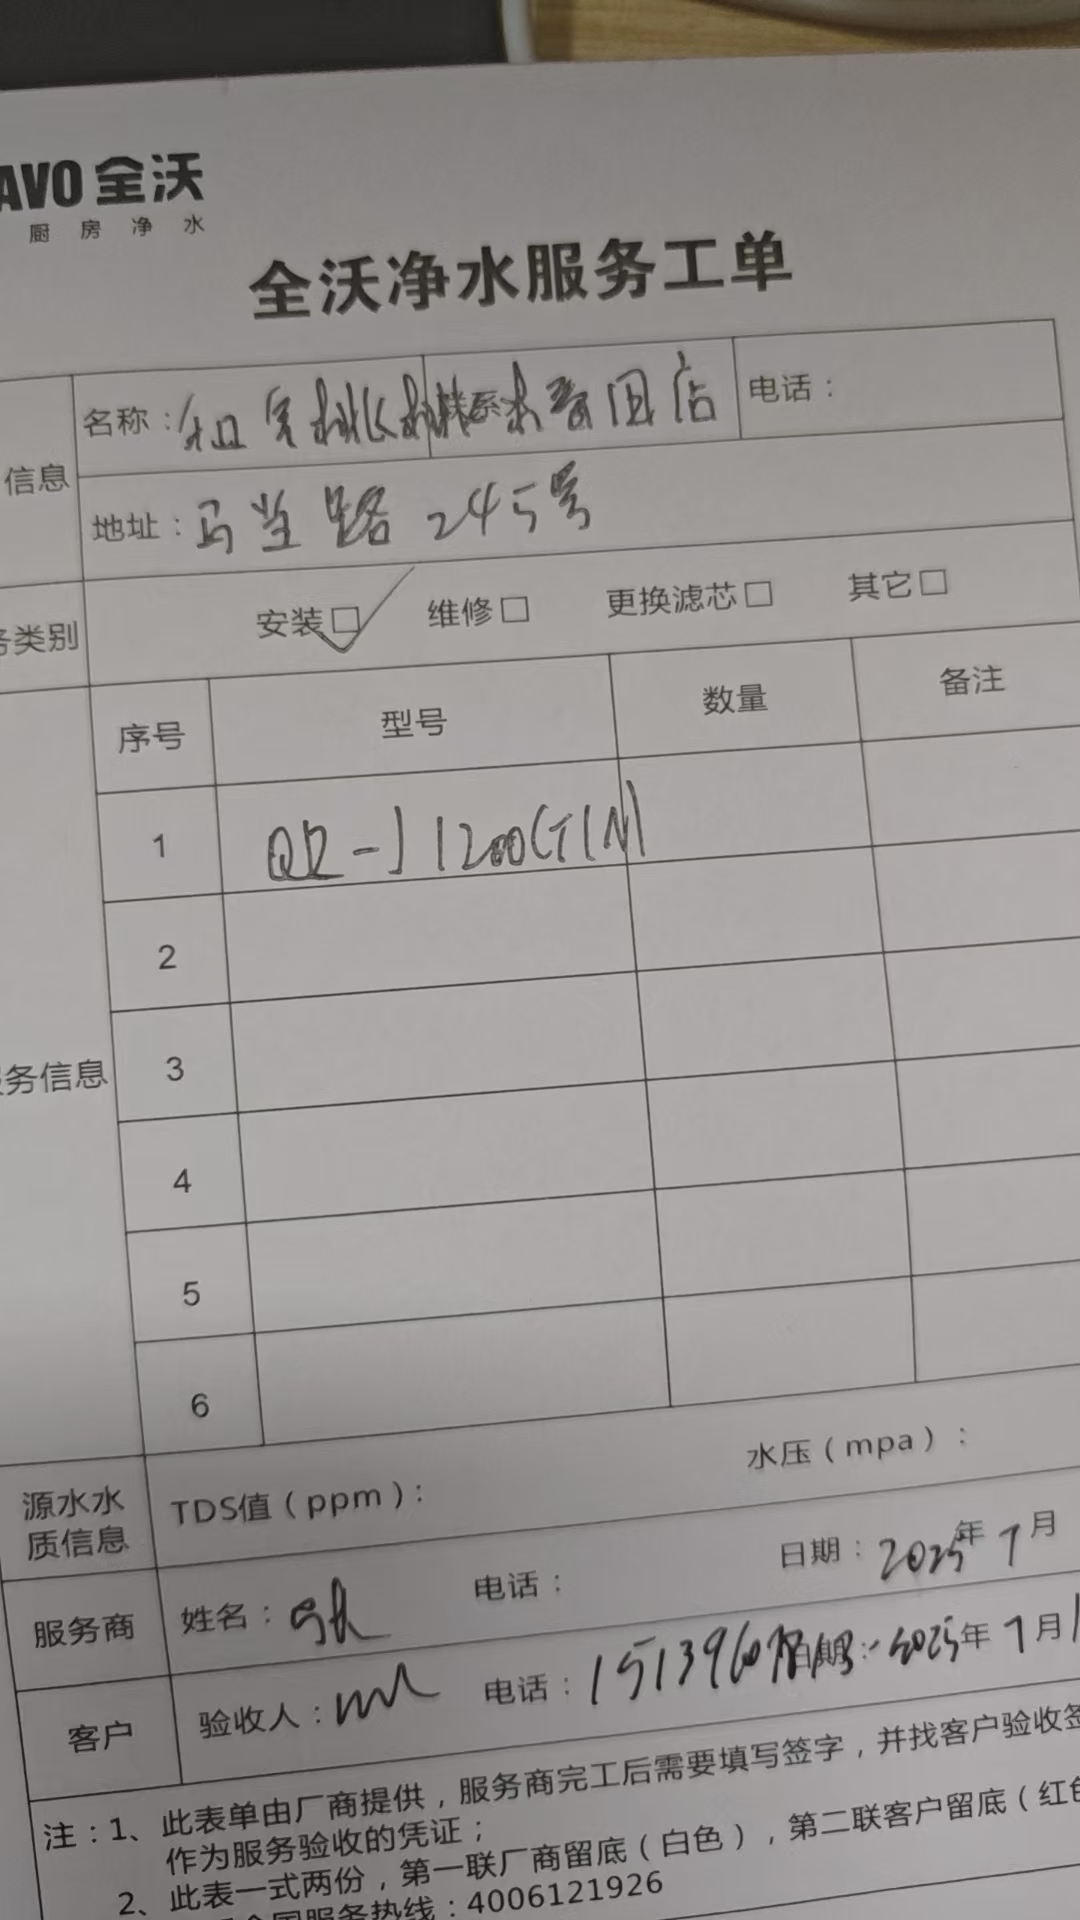 AVO 全沃
厨房净水
全沃净水服务工单
信息
名称：
店
电话：
地址：马当路245号
务类别
安装□ 维修□ 更换滤芯□ 其它□
序号 型号 数量 备注
1 QR-J1200(TIN)
2
3
务信息
4
5
6
源水水质信息
TDS值（ppm）： 水压（mpa）：
服务商 姓名： 电话： 日期：2025年7月
客户 验收人： 电话： 日期：2025年7月1
注：1、此表单由厂商提供，服务商完工后需要填写签字，并找客户验收签
作为服务验收的凭证；
2、此表一式两份，第一联厂商留底（白色），第二联客户留底（红色
全国服务热线：4006121926